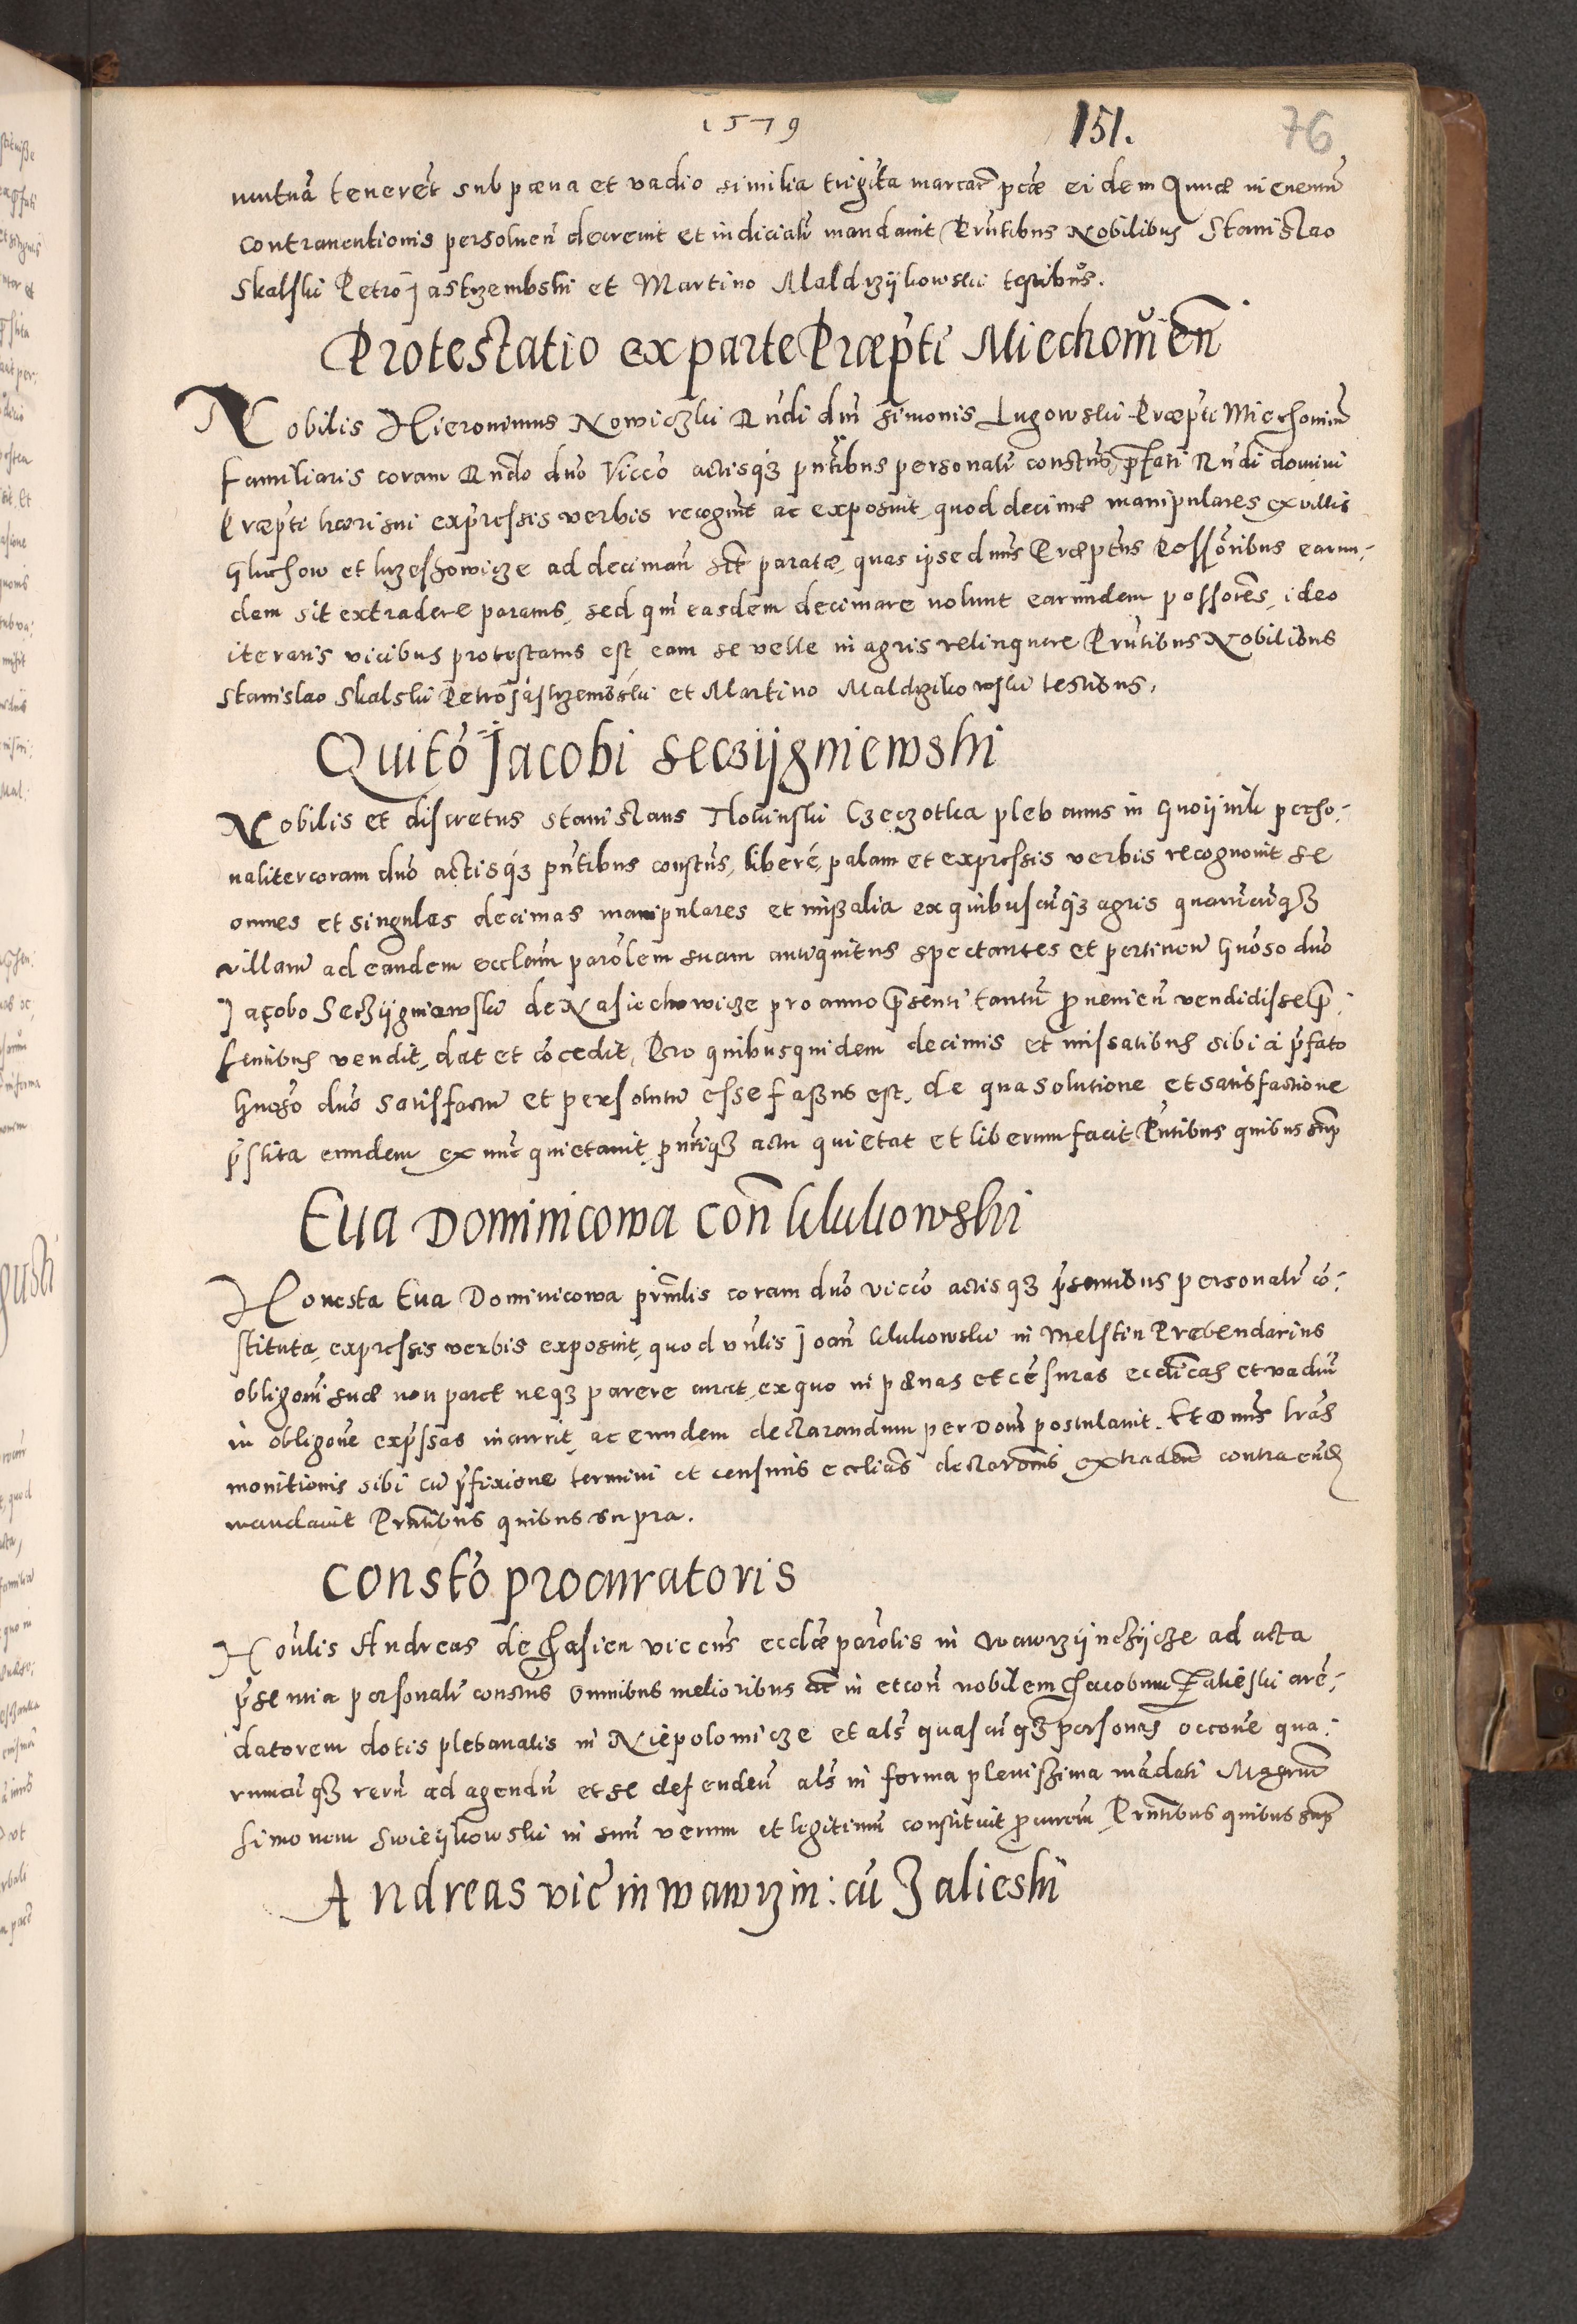 1579
151.
76
mutuã tenerẽt sub pæna et vadio similia triginta marcarũ pctæ eidem Annæ in enenũ
contrauentionis persoluen̄ decreuit et iudicialr̃ mandauit Prñtibus Nobilibus Stanislao
Skalski Petro Jastrzembski et Martino Maldrzÿkowski testibus.
Protestatio ex parte Præpti Miechouien̄
Nobilis Hieronimus Nowiczki Rñdi dnĩ Simonis Lugowski Præpti Miechouien̄
familiaris coram Rñdo dno Vicco actisq3 pñtibus personalr̃ constus, p̃fati Rñdi domini
Præpti hæri sui expressis verbis recognit ac exposuit, quod decimæ manipulares ex villis
Gluchow et Luzeskowicze ad deciman̄ sñt paratæ, quas ipse dnus Præptus Possõribus earun-
dem sit extradere paratus, sed quĩ easdem decimare nolunt earundem possores, ideo
iteratis vicibus protestatus est, eam se velle in agris relinquere Prñtibus Nobilibus
Stanislao Skalski Petro Jastrzembski et Martino Maldrzikowski testibus.
Quito Jacobi Seczÿgniewski
Nobilis et discretus Stanislaus Tlokinski Czeczotka plebanus in Gnoÿnik perso-
naliter coram dño actisq3 pñtibus constus, liberé, palam et expressis verbis recognouit se
omnes et singulas decimas manipulares et missalia ex quibuscũq3 agris quarũcũq3
villarũ ad eandem eccleam parolem suam antiquitus spectantes et pertinen̄ Gñoso dno
Jacobo Seczÿgniewski de Nasiechowicze pro anno p̃senti tantũ prouenien̄ vendidisse p̃-
sentibus vendit, dat et cõcedit, Pro quibusquidem decimis et missalibus sibi à p̃fato
Gñoso dño satisfactũ et persolutũ esse fassus est, de qua solutione et satisfactione
p̃stita eundem ex nũc quietauit, pñtiq3 actu quietat et liberum facit Pñtibus quibus sup̃
Eua Dominicowa con̄ Klukowski
Honesta Eua Dominicowa coram dño vicco actisq3 p̃sentibus personalr̃ cõ-
stituta, expressis verbis exposuit, quod vñlis Joañ Klukowski in Melstin Præbendarius
obligoni suæ non paret neq3 parere curat, ex quo in pænas et cẽsuras ecclicas et vadiũ
in obligone exp̃ssas incurrit, ac eundem declarandum per Dom̃ postulauit. Et Dnus lrãs
monitionis sibi cũ p̃fixione termini et censuris ecclias declaronis extraden̄ contra eũd
mandauit Prñtibus quibus supra.
Consto procuratoris
Hoñlis Andreas de viccus ecclæ parolis in Wawrzÿnczÿcze ad acta
p̃sentia personalr̃ constus omnibus melioribus in et con̄ nobilem Jacobum Zalieski arẽ-
datorem dotis plebanalis in Niepolomicze et als̃ quascũq3 personas occone qua-
rumcũq3 rerũ ad agendũ et se defendeñ als̃ in forma plenissima mãdati Magrum̃
Simonem Swieÿkowski in suũ verum et legitimũ constituit procurem̃ Prñtibus quibus sup̃
Andreas vic̃ in Wawrzin: cũ Zalieski